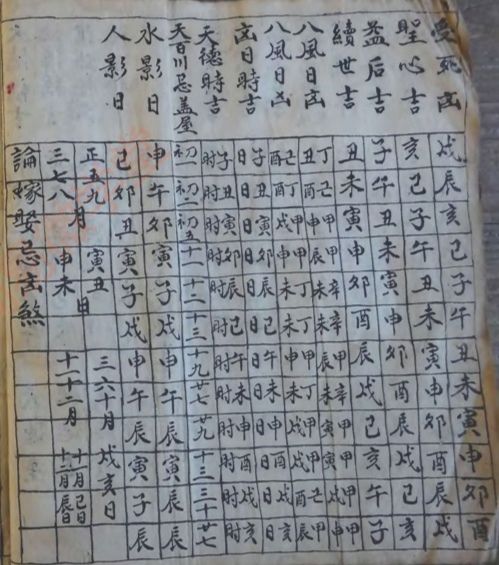 受死凶 戌辰亥己子午丑未寅申卯酉
聖心吉 亥己子午丑未寅申卯酉辰戌
益后吉 子午丑未寅申卯酉辰戌己亥
續世吉 丑未寅申卯酉辰戌己亥午子
八風日凶 丁丑 甲辰 辛未 辛未 甲辰 辛未 甲寅 甲申
八風日凶 己酉 甲戌 甲申 丁未 丁未 甲申 丁未 甲戌 甲戌 己酉 甲辰
凶日時吉 子日 丑日 寅日 卯日 辰日 己日 午日 未日 申日 酉日 戌日 亥日
天德時吉 子时 丑时 寅时 卯时 辰时 己时 午时 未时 申时 酉时 戌时 亥时
天百川忌盖屋 初一 初二 初五 十一 十二 十三 十九 廿七 廿九 十三 三十 廿七
水影日 申午卯寅子戌申午辰寅辰辰
人影日 己卯丑寅子戌申午辰寅子辰
正五九月 寅丑日 三六十月 戌亥日
三七八 申未 十一十二月 十一月己日 十二月辰日
論嫁娶忌凶煞